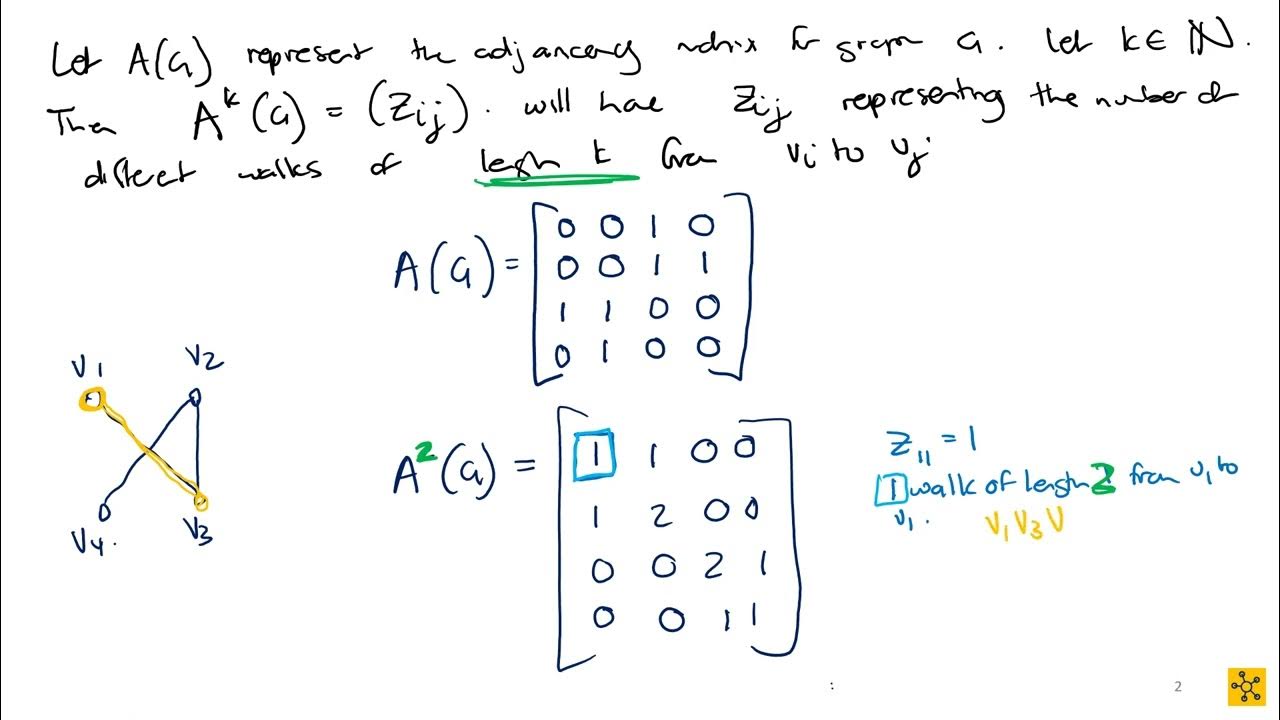 Let A(G) represent the adjancency matrix for graph G. Let k ∈ ℕ.
Then A^k(G) = (Z_ij). will hae Z_ij representing the number of
differet walks of legh k from v_i to v_j
A(G) = [0 0 1 0
0 0 1 1
1 1 0 0
0 1 0 0]
V1 V2
V4. V3
A^2(G) = [1 1 0 0
1 2 0 0
0 0 2 1
0 0 1 1]
Z_11 = 1
1 walk of length 2 from v_1 to
v_1. V_1 V_3 V
:
2